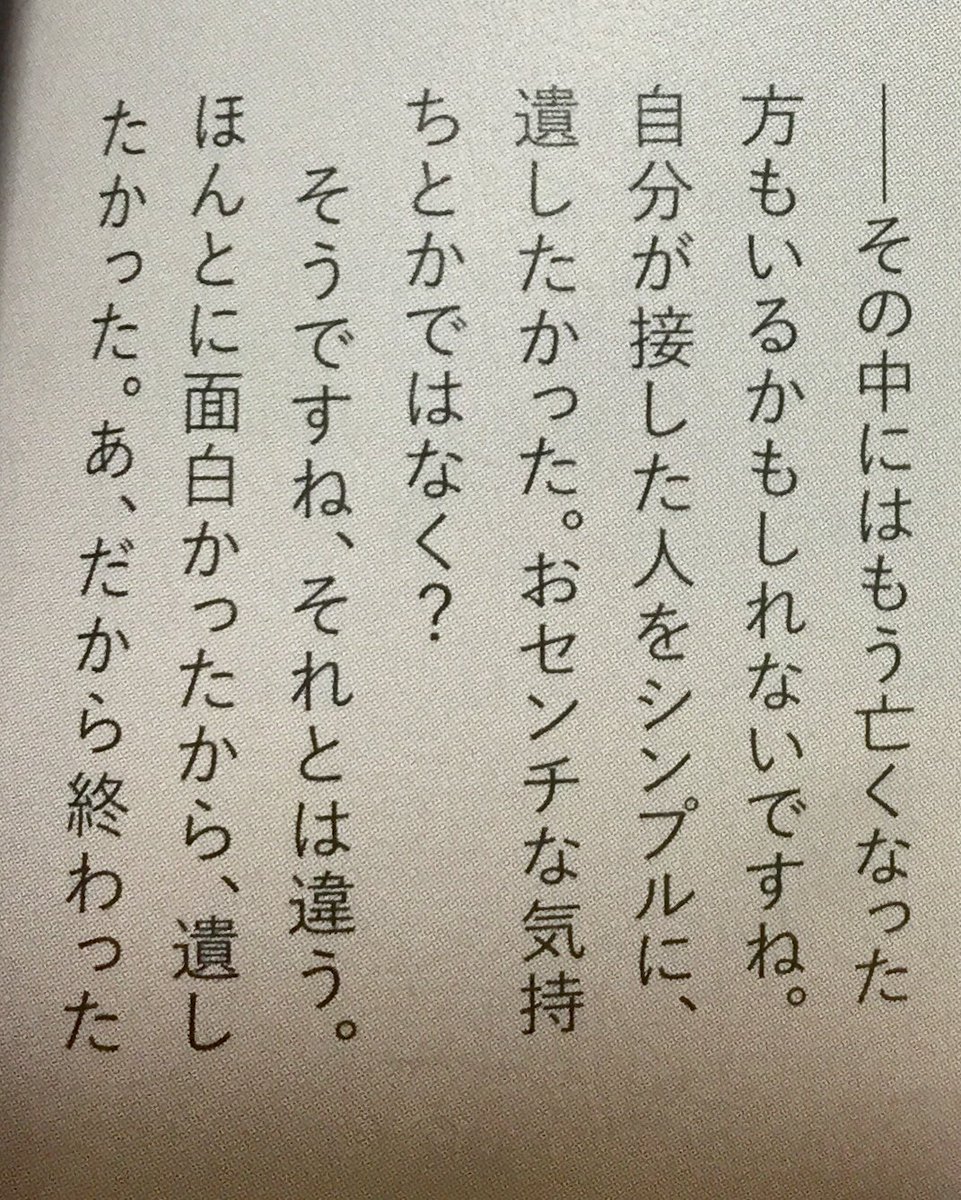 ――その中にはもう亡くなった
方もいるかもしれないですね。
自分が接した人をシンプルに、
遺したかった。おセンチな気持
ちとかではなく？
そうですね、それとは違う。
ほんとに面白かったから、遺し
たかった。あ、だから終わった